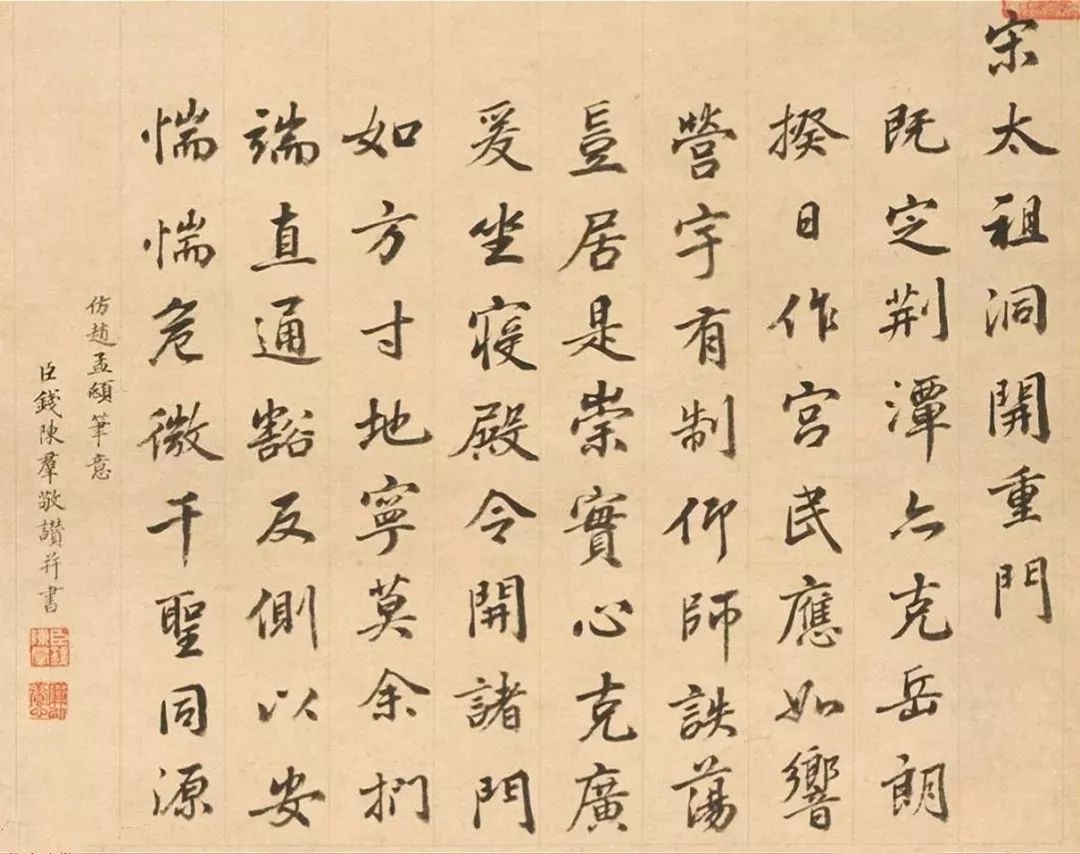 宋太祖洞開重門
既定荆潭亦克岳朗
揆日作宫民應如響
營宇有制仰師詄蕩
豈居是崇實心克廣
爰坐寝殿令開諸門
如方寸地寧莫余捫
端直通豁反側以安
惴惴危微千聖同源
仿趙孟頫筆意
臣錢陳羣敬讃并書